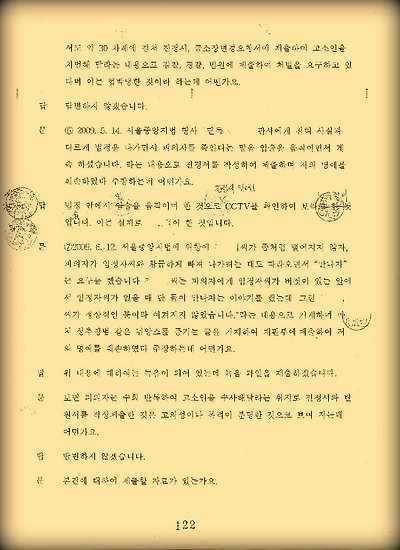 서도 약 30 차례에 걸쳐 진정서, 공소장변경요청서에 제출하여 고소인을
처벌해 달라는 내용으로 검찰, 경찰, 법원에 제출하여 처벌을 요구하고 있
다며 이는 협박당한 것이라 하는데 어떤가요.
답 답변하지 않겠습니다.
문 ⑥ 2009. 5. 14. 서울중앙지법 형사 단독 판사에게 진혀 사실과
다르게 법정을 나가면서 피의자를 죽인다는 말을 입술을 움직이면서 계
속 하셨습니다. 라는 내용으로 진정서를 작성하여 제출하며 저의 명예를
훼손하였다 주장하는데 어떤가요.
답 법정 안에서 입술을 움직이며 한 것으로 CCTV를 확인하여 보
입니다. 이는 실제로 이 한 것입니다.
문 ⑦2009. 6. 12. 서울중앙지법에 위증에 씨가 좀처럼 떨어지지 않자,
피의자가 임정자씨와 황급하게 빠져 나가려는 데도 따라오면서 "만나자"
는 요구를 했습니다 는 피의자에게 임정자씨가 버젓이 있는 앞에
서 임정자씨가 없을 때 단 둘이 만나자는 이야기를 했는데 그런
씨가 정상적인 분이라 여겨지지 않았습니다."라는 내용으로 기재하여 마
치 성추행범 같은 뉘앙스를 풍기는 글을 기재하여 재판부에 제출하여 저
의 명예를 훼손하였다 주장하는데 어떤가요.
답 위 내용에 대하여는 녹음이 되어 있는데 녹음 파일을 제출하겠습니다.
문 로변 피의자는 수회 반복하여 고소인을 수사해달라는 취지로 진정서와 탄
원서를 작성제출한 것은 고의성이나 목적이 분명한 것으로 보여 지는데
어떤가요.
답 답변하지 않겠습니다.
문 본건에 대하여 제출할 자료가 있는가요.
122